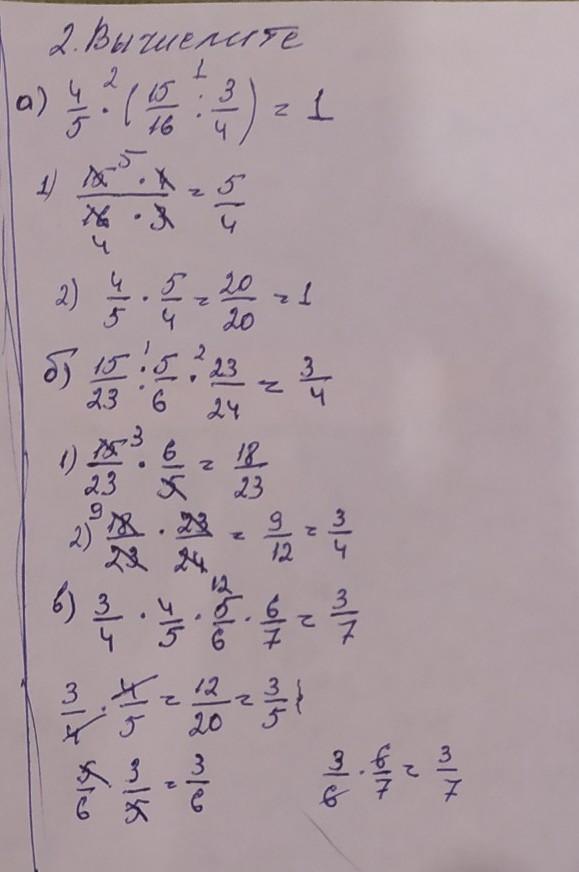 2. Вычислите
а) 4/5 · (15/16 : 3/4) = 1
1) 15 · 4 / 16 · 3 = 5/4
2) 4/5 · 5/4 = 20/20 = 1
б) 15/23 : 5/6 · 23/24 = 3/4
1) 15/23 · 6/5 = 18/23
2) 18/23 · 23/24 = 9/12 = 3/4
в) 3/4 · 4/5 · 5/6 · 6/7 = 3/7
3/4 · 4/5 = 12/20 = 3/5
5/6 · 3/5 = 3/6 3/6 · 6/7 = 3/7